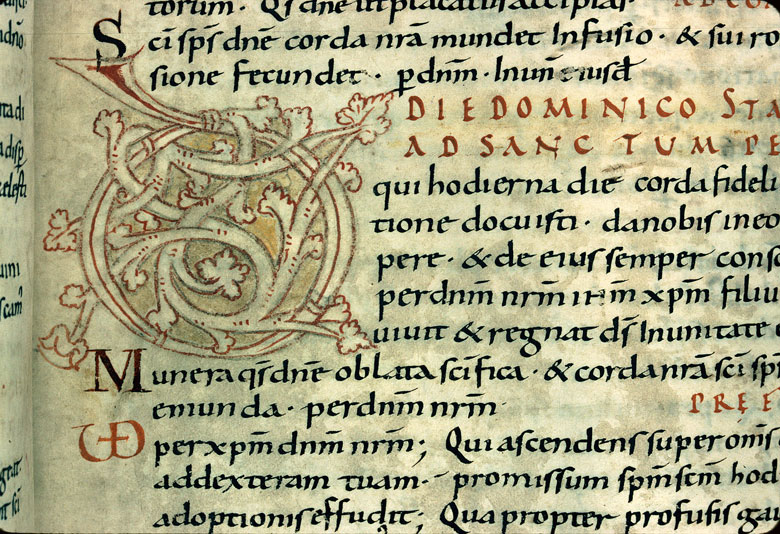 torum · Qs dne ut placatus accipias · AD COM
Sci sps dne corda nra mundet infusio · & sui ro
sione fecundet · p dnm · In uni eiusd
DIE DOMINICO STA
AD SANCTUM PE
D qui hodierna die corda fideli
tione docuisti · da nobis in eo
pere · & de eius semper conso
per dnm nrm ihm xpm filiu
vivit & regnat ds In unitate
Munera qs dne oblata scifica · & corda nra sci spi
emunda · per dnm nrm PREF
per xpm dnm nrm; Qui ascendens super oms
ad dexteram tuam · promissum spm scm hod
adoptionis effudit; Qua propter profusis gau